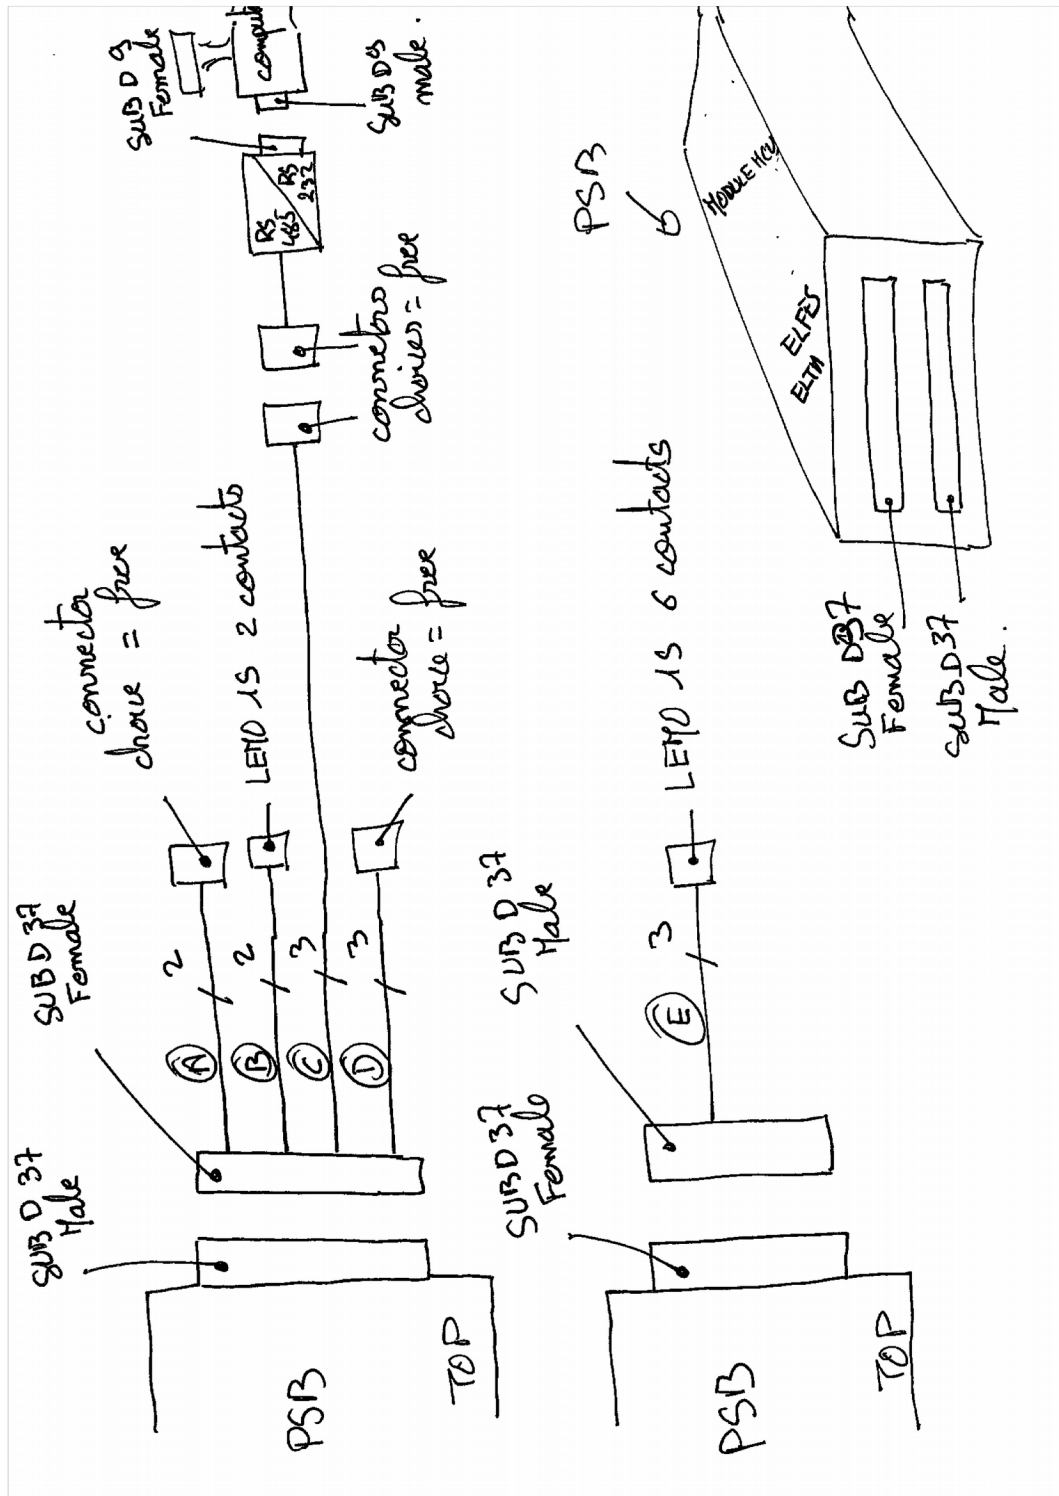 PSB
TOP
SUB D 37
Male
SUB D 37
Female
A
2
B
2
C
3
D
3
connector
choice = free
LEMO 1S 2 contacts
connector
choice = free
connectors
choices = free
RS
485
RS
232
SUB D 9
Female
SUB D9
male.
PSB
TOP
SUB D 37
Female
SUB D 37
Male
E
3
LEMO 1S 6 contacts
PSB
MODULE MCU
ELFES
ELTM
SUB D37
Female
SUB D37
Male.